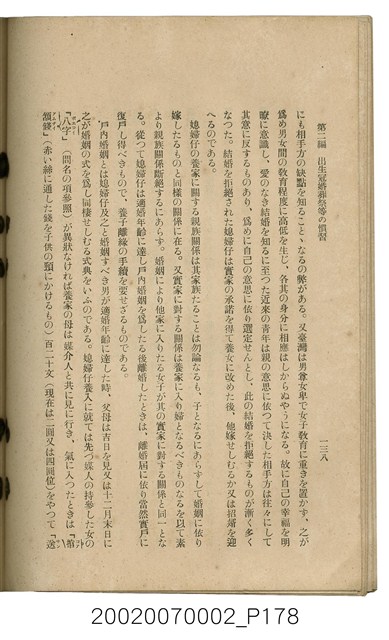 第二編　出生冠婚葬祭等の慣習
一三八
にも相手方の缺點を知ることゝなるの弊がある。又臺灣は男尊女卑で女子敎育に重きを置かず、之が
爲め男女間の敎育程度に高低を生じ、各其の身分に相應はしからぬやうになる。故に自己の幸福を明
瞭に意識し、愛のなき結婚を知るに至つた近來の靑年は親の意思に依つて決した相手方は往々にして
其意に反するものあり、爲めに自己の意思に依り選定せんとし、此の結婚を拒絕するものが漸く多く
なつた。結婚を拒絕された媳婦仔は實家の承諾を得て養女に改めた後、他嫁せしむるか又は招婿を迎
へるのである。
媳婦仔の養家に關する親族關係は其家族たることは勿論なるも、子となるにあらずして婚姻に依り
嫁したるものと同樣の關係に在る。又實家に對する關係は養家に入り婦となるべきものなるを以て素
より親族關係斷絕するにあらず。婚姻により他家に入りたる女子が其の實家に對する關係と同一とな
る。從つて媳婦仔は適婚年齡に達し戶內婚姻を爲したる後離婚したときは、離婚屆に依り當然實戶に
復戶し得べきもので、養子離緣の手續を要せざるものである。
戶內婚姻とは媳婦仔及之と婚姻すべき男が適婚年齡に達した時、父母は吉日を見又は十二月末日に
之が婚姻の式を爲し同棲せしむる式典をいふのである。媳婦仔養入に就ては先づ媒人の持參した女の
「八字」（問名の項參照）が異狀なければ養家の母は媒介人と共に見に行き、氣に入つたときは「掛
頷錢」（赤い絲に通した錢を子供の頸にかけるもの）百二十文（現在は二圓又は四圓位）をやつて「送